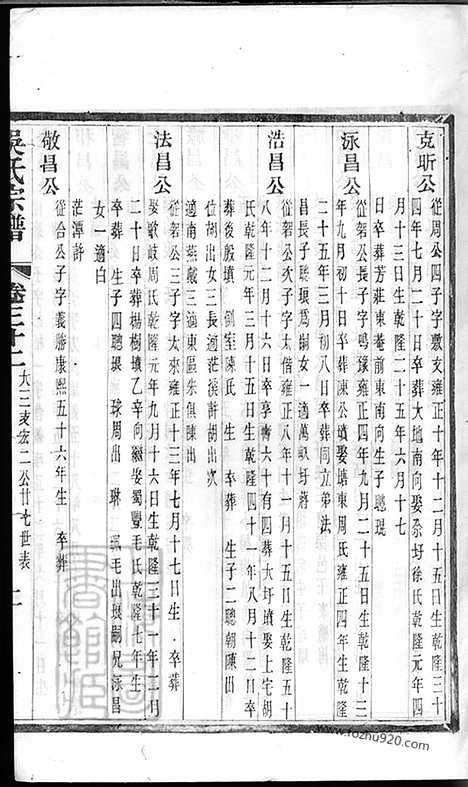 克昕公
從周公四子字敷支雍正十年十二月十五日生乾隆三十
四年七月二十日卒葬大地南向娶忝圩徐氏乾隆元年四
月十三日生乾隆二十五年六月十七
日卒葬芳莊東菴前東南向生子聰琨
泳昌公
從貂公長子字鳴豫雍正四年九月二十五日生乾隆十三
年九月初十日卒葬陳公墳娶塘東周氏雍正四年生乾隆
二十五年三月初八日卒葬同立弟法
昌長子聰珢爲嗣女一適萬馭圩蔣
浩昌公
從貂公次子字太偕雍正八年十一月十五日生乾隆五十
八年十二月十六日卒享壽六十有四葬大圩墳娶上宅胡
氏乾隆元年三月十五日生乾隆四十一年八月十二日卒
葬後殷墳 側室陳氏 生 卒葬 生子二聰朝陳出
位胡出女三長適茫溪許胡出次
適南燕戴三適東區朱俱陳出
法昌公
從貂公三子字太來雍正十三年七月十七日生 卒葬
娶歌岐周氏乾隆元年九月十六日生乾隆三十一年二月
二十日卒葬楊樹墳乙辛向繼娶蜀豐毛氏乾隆七年生
卒葬 生子四聰珢 球周出 琳 珮毛出珢嗣兄泳昌
女一適白
茫潭許
敬昌公
從合公子字義勝康熙五十六年生 卒葬
吳氏宗譜
卷三十二
大二三支宏二公廿七世表
二
www.fozhu920.com